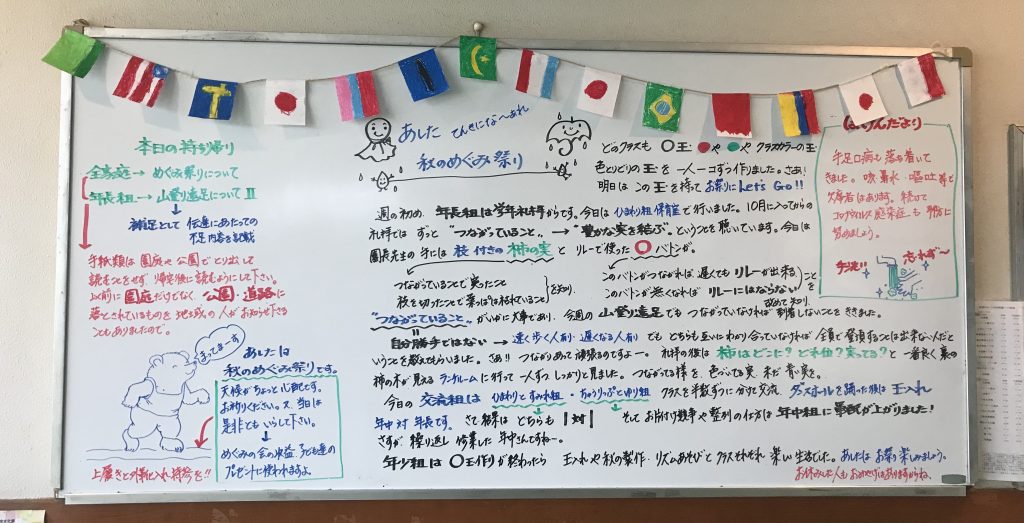 本日の持ち帰り
全家庭→めぐみ祭りについて
年長組→山登り遠足についてⅡ
補足として伝達にあたっての
不足内容を記載
手紙類は園庭や公園でとり出して
読むことをせず、帰宅後に読むようにして下さい。
以前に園庭だけでなく、公園・道路に
落とされているものを地域の人がお知らせ下さる
こともありましたので。
まってまーす
あしたは
秋のめぐみ祭りです。
天候がちょっと心配です。
お祈りください。又、当日は
是非ともいらして下さい。
めぐみの会の収益、子ども達の
プレゼントに使われますよ。
上履きと外靴入れ持参を!!
あした てんきにな〜あれ
秋のめぐみ祭り
どのクラスも ○玉 ●や●や クラスカラーの玉
色とりどりの玉を一人一コずつ作りました。さあ!
明日はこの玉を持ってお祭りにLet's Go!!
週の初め、年長組は学年礼拝からです。今日はひまわり組保育室で行いました。10月に入ってからの
礼拝では ずっと "つながっていること"、→ "豊かな実を結ぶ"。ということを聴いています。今日は
園長先生の手には 枝付きの柿の実 と リレーで使った ○バトンが。
つながっていることで実ったこと
枝を切ったことで葉っぱは枯れていること
を知り、
このバトンがつながれば、遅くてもリレーが出来る
このバトンが無くなれば リレーにはならない
こと
を
改めて知り、
"つながっていること"がいかに大事であり、今週の山登り遠足でもつながっていなければ到着しないことをききました。
自分勝手ではない → 速く歩く人有り・遅くなる人有り でも どちらも互いにわかり合っていなければ 全員で登頂することは出来ないんだと
いうことを教えてもらいました。さあ!! つながりあって頑張るのですよー。礼拝の後は 柿はどこに? どれ位? 実ってる? と 一番良く裏の
柿の木が見える ランチルームに行って 一人ずつ しっかりと見ました。つながってる様を、色づいてる実、まだ青い実を。
今日の 交流組は ひまわりとすみれ組・ちゅうりっぷとゆり組 クラスを半数ずつに分けて交流、ダンスホールを踊った後は 玉入れ
年中 対 年長です。さて結果は どちらも 1対1 そしてお片付け競争や整列の仕方は 年中組に軍配が上がりました!
さすが、繰り返し 修業した 年中さんですねー。
年少組は ○玉作りが終わったら 玉入れや秋の製作・リズムあそびと クラスそれぞれ 楽しい生活でした。あしたは お祭り楽しみましょう。
お休みした人も おみやげはありますからね。
ほけんだより
手足口病も落ち着いて
きました。咳、鼻水、嘔吐等と
欠席者はあります。続けて
コロナウィルス感染症も 予防に
努めましょう。
手洗い
忘れず〜